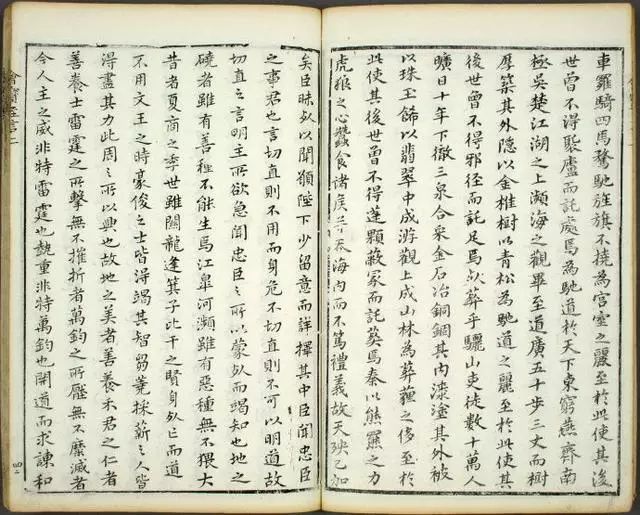 車羅騎四馬騖馳旌旗不撓為宮室之麗至於此使其後
世曾不得聚廬而託處焉為馳道於天下東窮燕齊南
極吳楚江湖之上瀕海之觀畢至道廣五十步三丈而樹
厚築其外隱以金椎樹以青松為馳道之麗至於此使其
後世曾不得邪徑而託足焉死葬乎驪山吏徒數十萬人
曠日十年下徹三泉合采金石冶銅錮其內漆塗其外被
以珠玉飾以翡翠中成游觀上成山林為葬薶之侈至於
此使其後世曾不得蓬顆蔽冢而託葬焉秦以熊羆之力
虎狼之心蠶食諸侯并吞海內而不篤禮義故天殃已加
矣臣昧死以聞願陛下少留意而詳擇其中臣聞忠臣
之事君也言切直則不用而身危不切直則不可以明道故
切直之言明主所欲急聞忠臣之所以蒙死而竭知也地之
磽者雖有善種不能生焉江皋河瀕雖有惡種無不猥大
昔者夏商之季世雖關龍逢箕子比干之賢身死亡而道
不用文王之時豪俊之士皆得竭其智芻蕘採薪之人皆
得盡其力此周之所以興也故地之美者善養禾君之仁者
善養士雷霆之所擊無不摧折者萬鈞之所壓無不糜滅者
今人主之威非特雷霆也埶重非特萬鈞也開道而求諫和